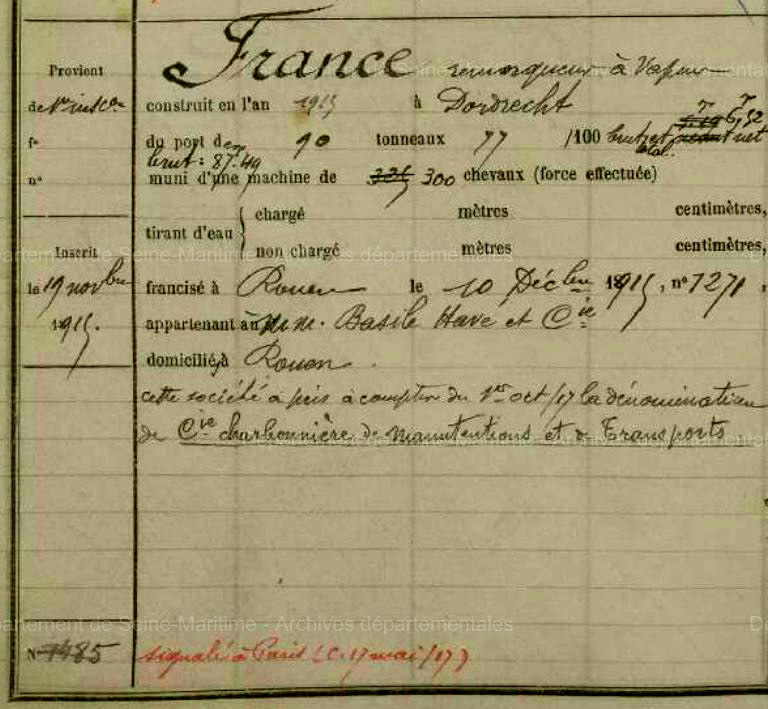 France remorqueur à Vapeur
Provient
de Nles insc.on construit en l'an 1915 à Dordrecht
f° du port de 90 tonneaux 77 /100 brut et net 6,52
brut : 87.49 total.
n° muni d'une machine de 335 300 chevaux (force effectuée)
chargé mètres centimètres,
tirant d'eau
non chargé mètres centimètres,
Inscrit
le 19 novbre francisé à Rouen le 10 Décbre 1915, n° 1271,
1915. appartenant à MM. Basile Havé et Cie
domicilié à Rouen.
cette société a pris à compter du 1er oct/17 la dénomination
de Cie charbonnière de Manutentions et de Transports
N° 1485 signalé à Paris (C. 17 mai/17)
Seine-Maritime - Archives départementales